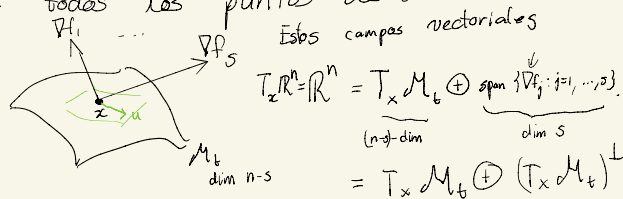 todas los puntos de
∇f₁ ... ∇f_s Estos campos vectoriales
T_xℝⁿ = ℝⁿ = T_x M_t ⊕ span {∇f_j : j=1, ..., s}.
x u (n-s)-dim dim s
M_t dim n-s
= T_x M_t ⊕ (T_x M_t)^⊥